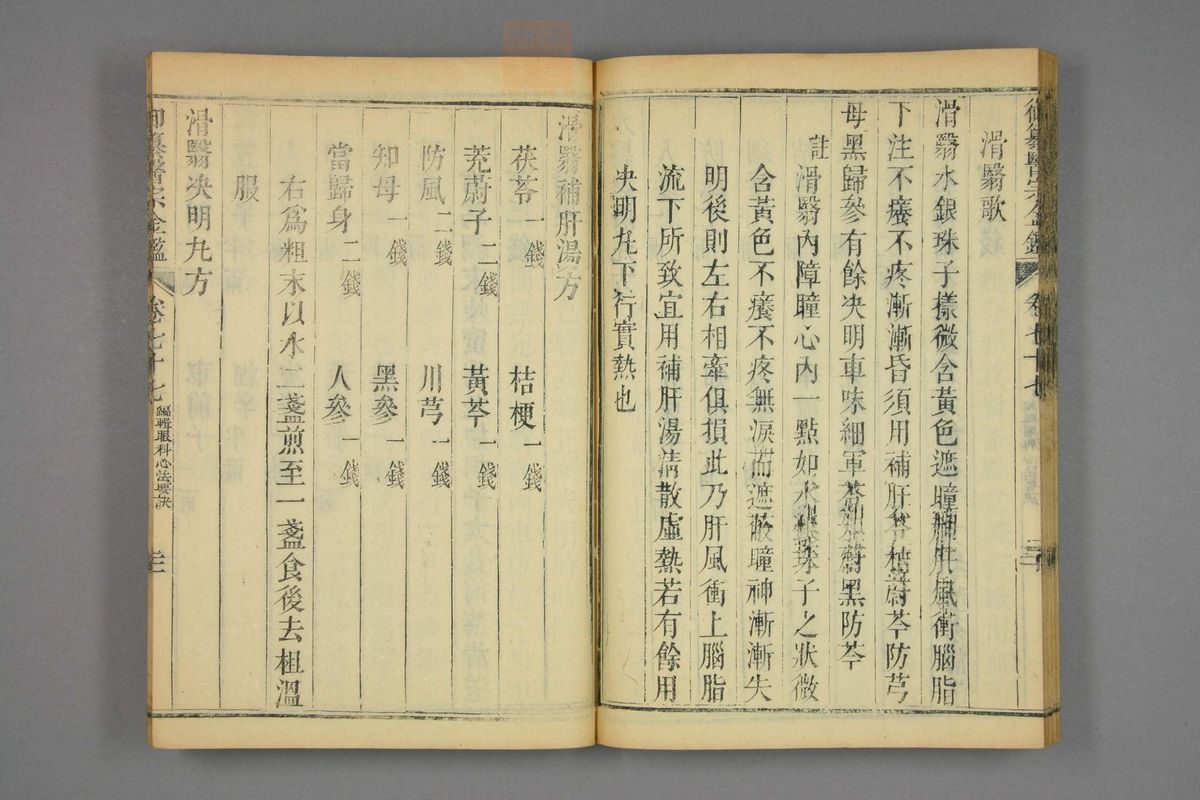 御纂醫宗金鑑 卷七十七
滑翳歌
滑翳水銀珠子樣微含黃色遮瞳神肝風衝腦脂
下注不癢不疼漸漸昏須用補肝苓桔蔚芩防芎
母黑歸參有餘决明車味細軍芩知蔚黑防芩
註滑翳內障瞳心內一點如水銀珠子之狀微
含黃色不癢不疼無淚而遮蔽瞳神漸漸失
明後則左右相牽俱損此乃肝風衝上腦脂
流下所致宜用補肝湯清散虛熱若有餘用
决明丸下行實熱也
滑翳補肝湯方
茯苓一錢 桔梗一錢
茺蔚子二錢 黃芩一錢
防風二錢 川芎一錢
知母一錢 黑參一錢
當歸身二錢 人參一錢
右爲粗末以水二盞煎至一盞食後去柤溫
服
滑翳决明丸方
御纂醫宗金鑑 卷七十七 編輯眼科心法要訣